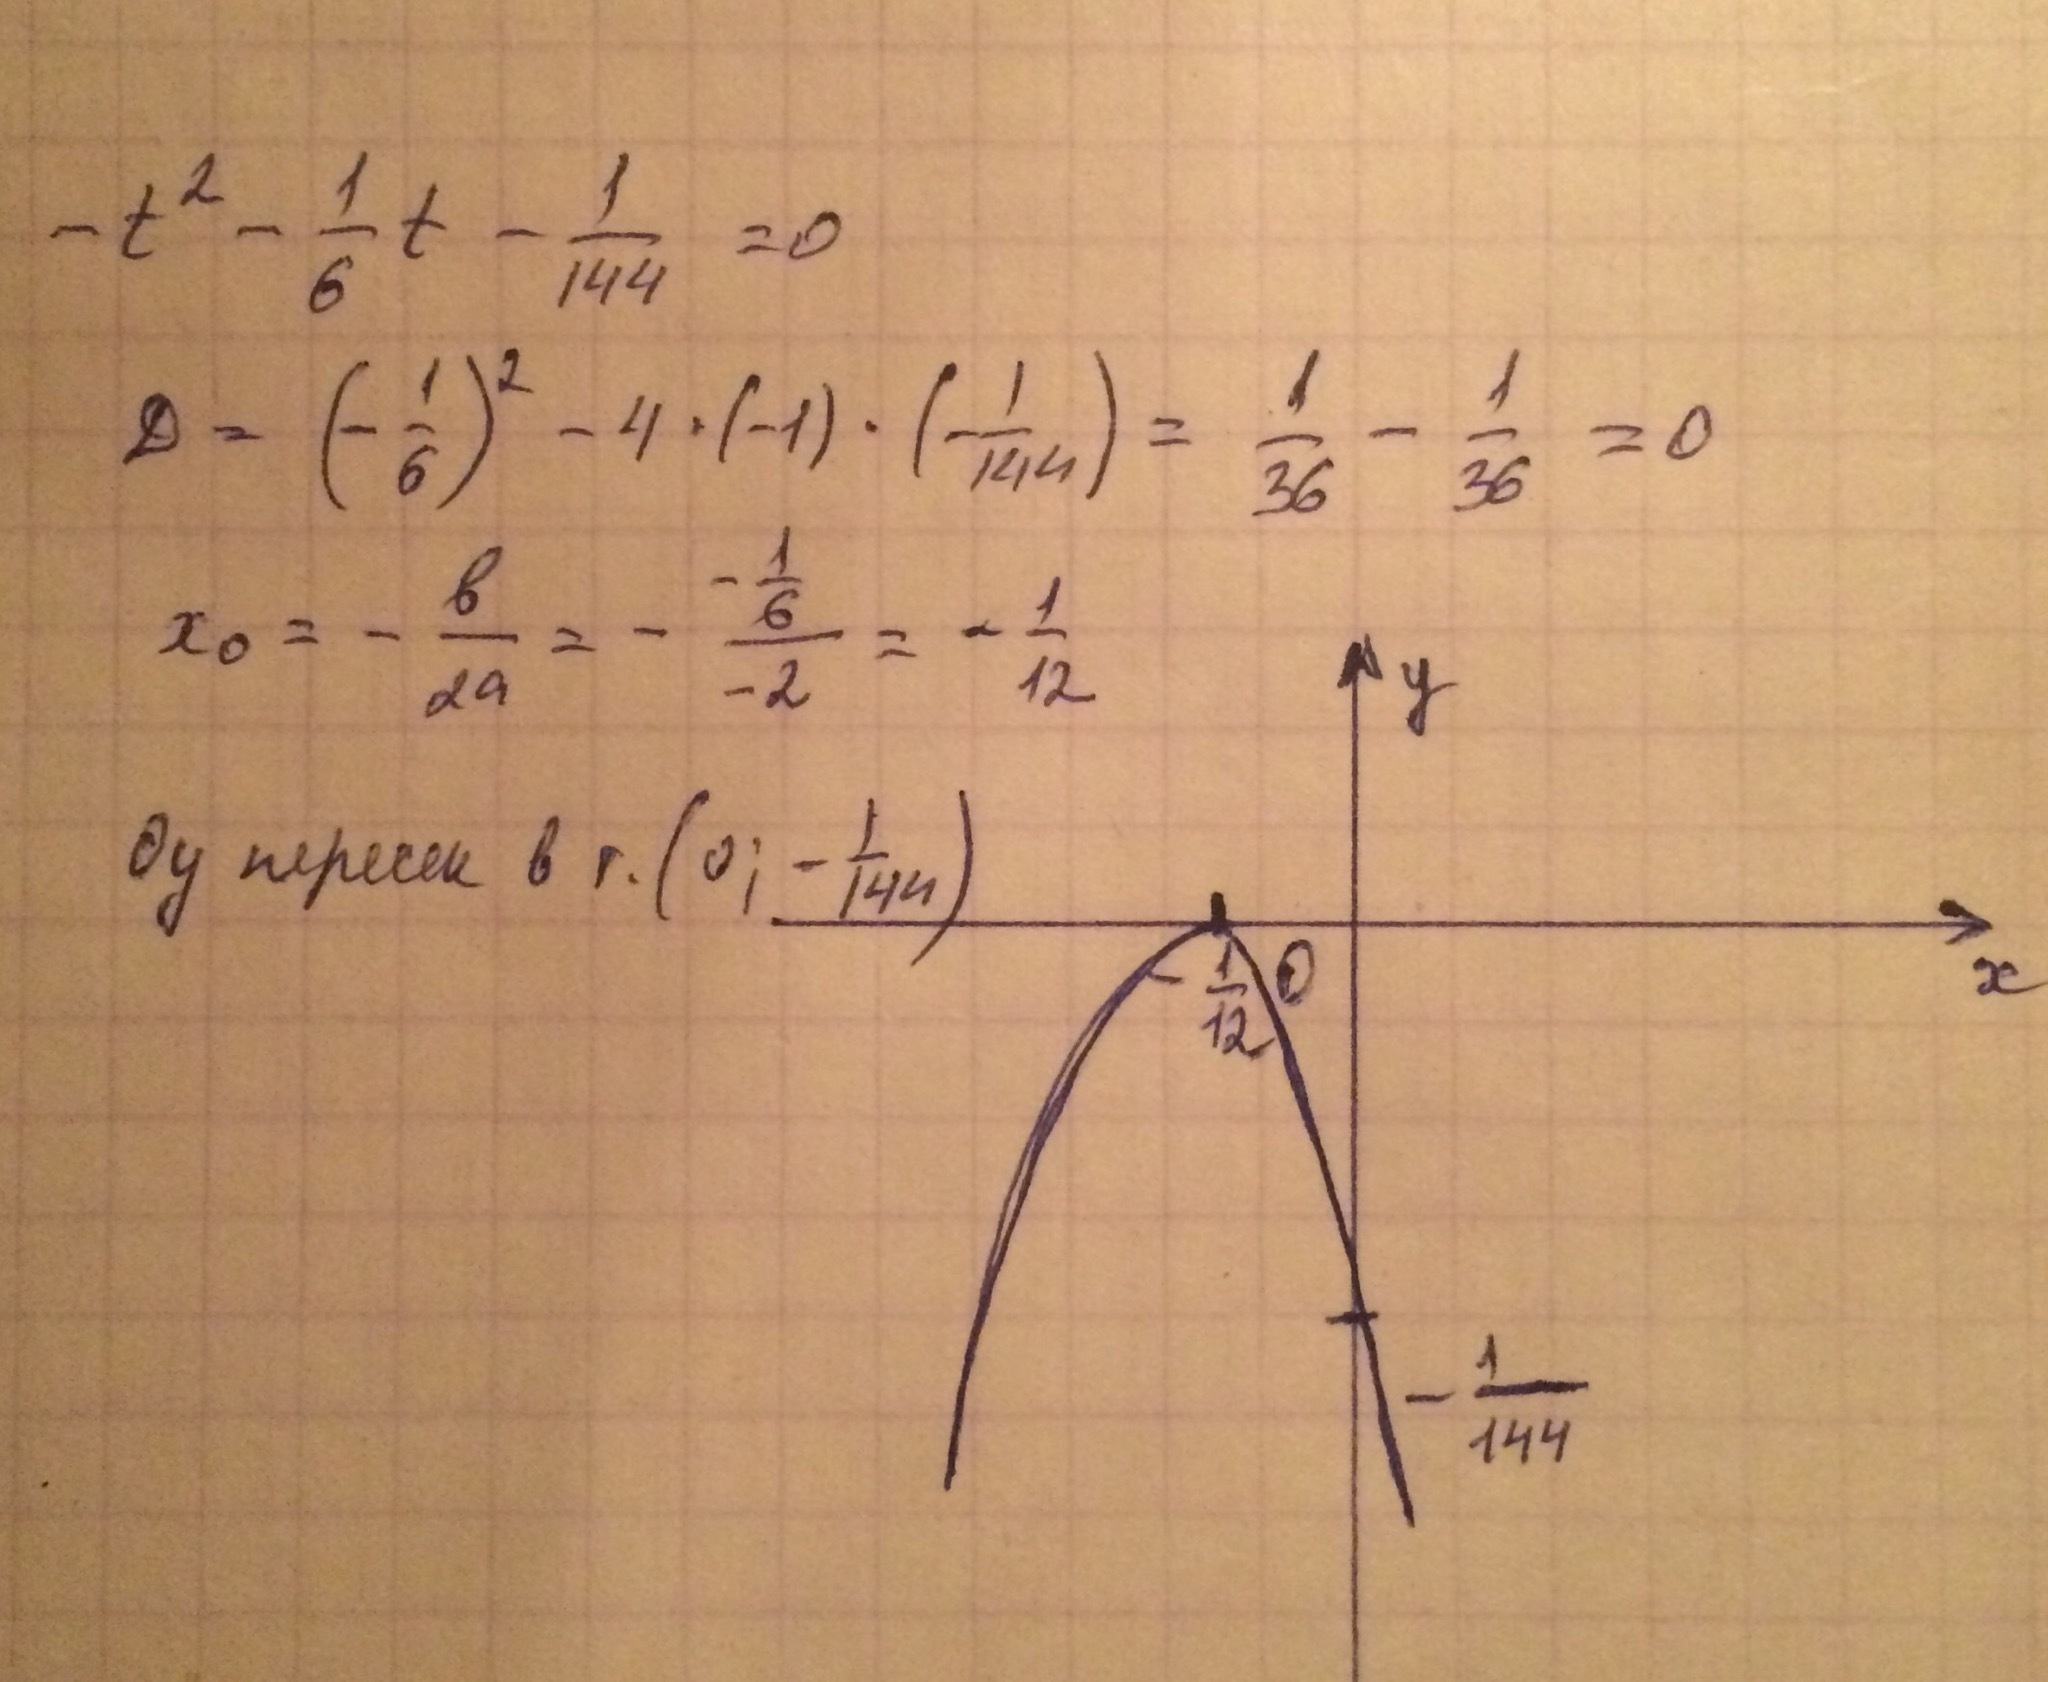 -t² - 1/6 t - 1/144 = 0
D = (-1/6)² - 4 · (-1) · (-1/144) = 1/36 - 1/36 = 0
x₀ = - в/2a = - (-1/6)/(-2) = - 1/12
y
Оу пересек в т. (0; - 1/144)
- 1/12
0
x
- 1/144